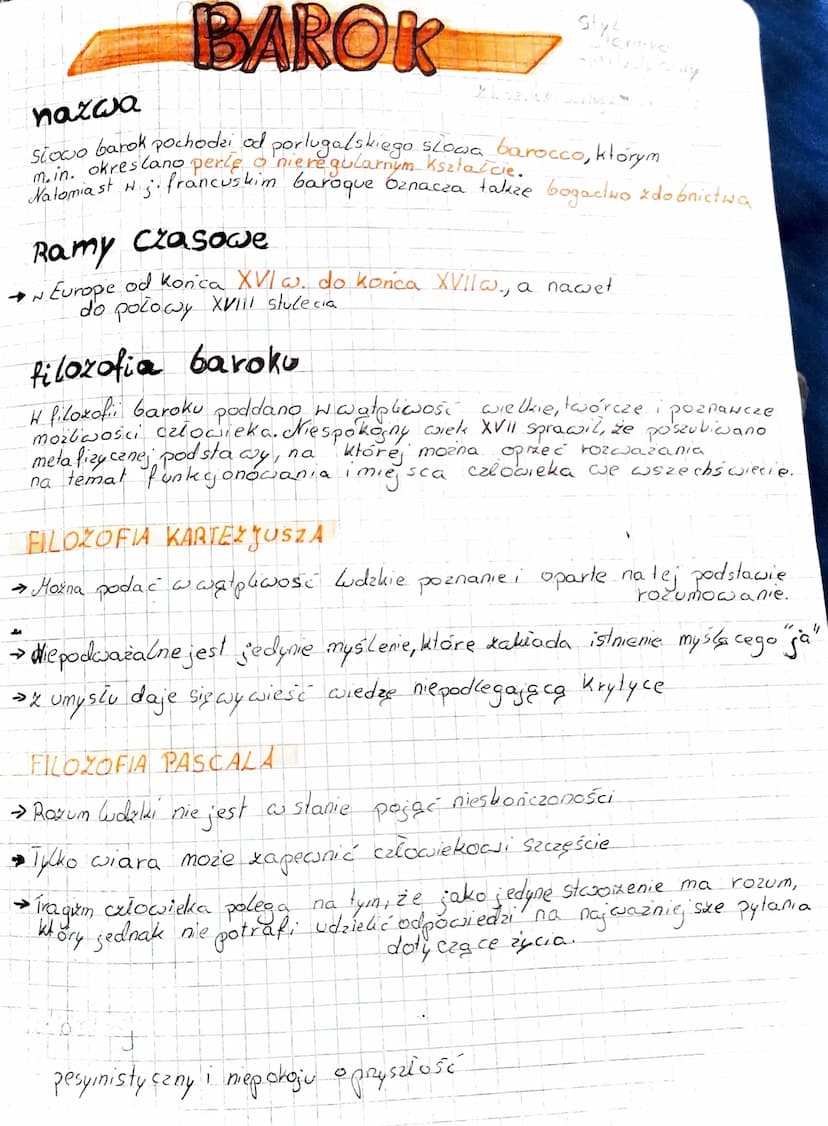 BAROK
Styl
nazwa
Słowo barok pochodzi od portugalskiego słowa barocco, którym
m.in. określano perłę o nieregularnym kształcie.
Natomiast w j. francuskim baroque oznacza także bogactwo zdobnictwa
Ramy czasowe
→ w Europe od końca XVI w. do końca XVII w., a nawet
do połowy XVIII stulecia
filozofia baroku
W filozofii baroku poddano w wątpliwość wielkie, twórcze i poznawcze
możliwości człowieka. Niespokojny wiek XVII sprawił, że poszukiwano
metafizycznej podstawy, na której można oprzeć rozważania
na temat funkcjonowania i miejsca człowieka we wszechświecie.
FILOZOFIA KARTEZJUSZA
→ Można podać w wątpliwość ludzkie poznanie i oparte na tej podstawie
rozumowanie.
→ Niepodważalne jest jedynie myślenie, które zakłada istnienie myślącego "ja"
→ z umysłu daje się wywieść wiedzę niepodlegającą krytyce
FILOZOFIA PASCALA
→ Rozum ludzki nie jest w stanie pojąć nieskończoności
→ Tylko wiara może zapewnić człowiekowi szczęście
→ Tragizm człowieka polega na tym, że jako jedyne stworzenie ma rozum,
który jednak nie potrafi udzielić odpowiedzi na najważniejsze pytania
dotyczące życia.
pesymistyczny i niepokoju o przyszłość